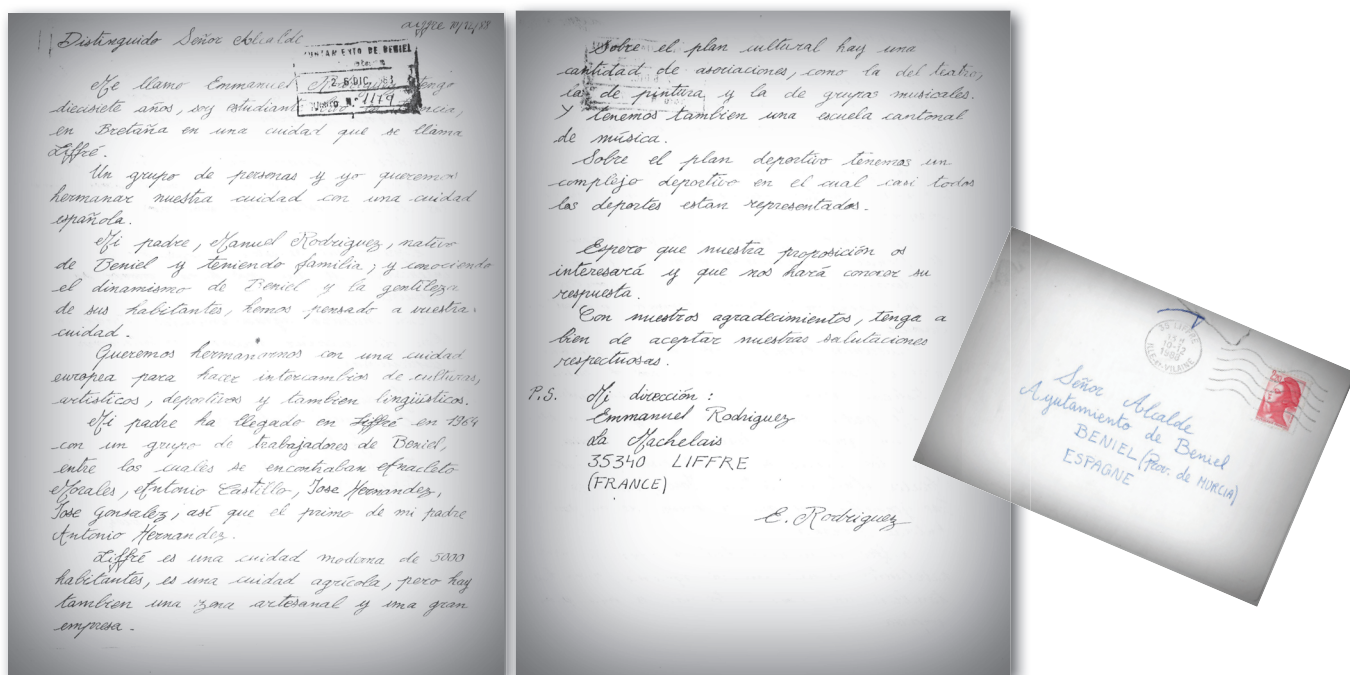 Liffré 10/12/88
Distinguido Señor Alcalde
AYUNTAMIENTO DE BENIEL
26 DIC.
N.º 1179
Me llamo Emmanuel tengo
diecisiete años, soy estudiante
en Bretaña en una cuidad que se llama
Liffré.
Un grupo de personas y yo queremos
hermanar nuestra cuidad con una cuidad
española.
Mi padre, Manuel Rodriguez, nativo
de Beniel y teniendo familia ; y conociendo
el dinamismo de Beniel y la gentileza
de sus habitantes, hemos pensado a vuestra
cuidad.
Queremos hermanarnos con una cuidad
europea para hacer intercambios de culturas,
artísticos, deportivos y tambien lingüísticos.
Mi padre ha llegado en Liffré en 1964
con un grupo de trabajadores de Beniel,
entre los cuales se encontraban Anacleto
Morales, Antonio Castillo, Jose Hernandez,
Jose Gonsalez, así que el primo de mi padre
Antonio Hernandez.
Liffré es una cuidad moderna de 5000
habitantes, es una cuidad agrícola, pero hay
tambien una zona artesanal y una gran
empresa.
Sobre el plan cultural hay una
cantidad de asociaciones, como la del teatro,
la de pintura y la de grupos musicales.
Y tenemos tambien una escuela cantonal
de música.
Sobre el plan deportivo tenemos un
complejo deportivo en el cual casi todos
los deportes estan representados.
Espero que nuestra proposición os
interesará y que nos hará conocer su
respuesta.
Con nuestros agradecimientos, tenga a
bien de aceptar nuestras salutaciones
respectuosas.
P.S. Mi dirección :
Emmanuel Rodriguez
La Machelais
35340 LIFFRE
(FRANCE)
E. Rodriguez
35 LIFFRE
10-12
1988
ILLE-ET-VILAINE
2,20
Señor Alcalde
Ayutamiento de Beniel
BENIEL (Prov. de MURCIA)
ESPAGNE